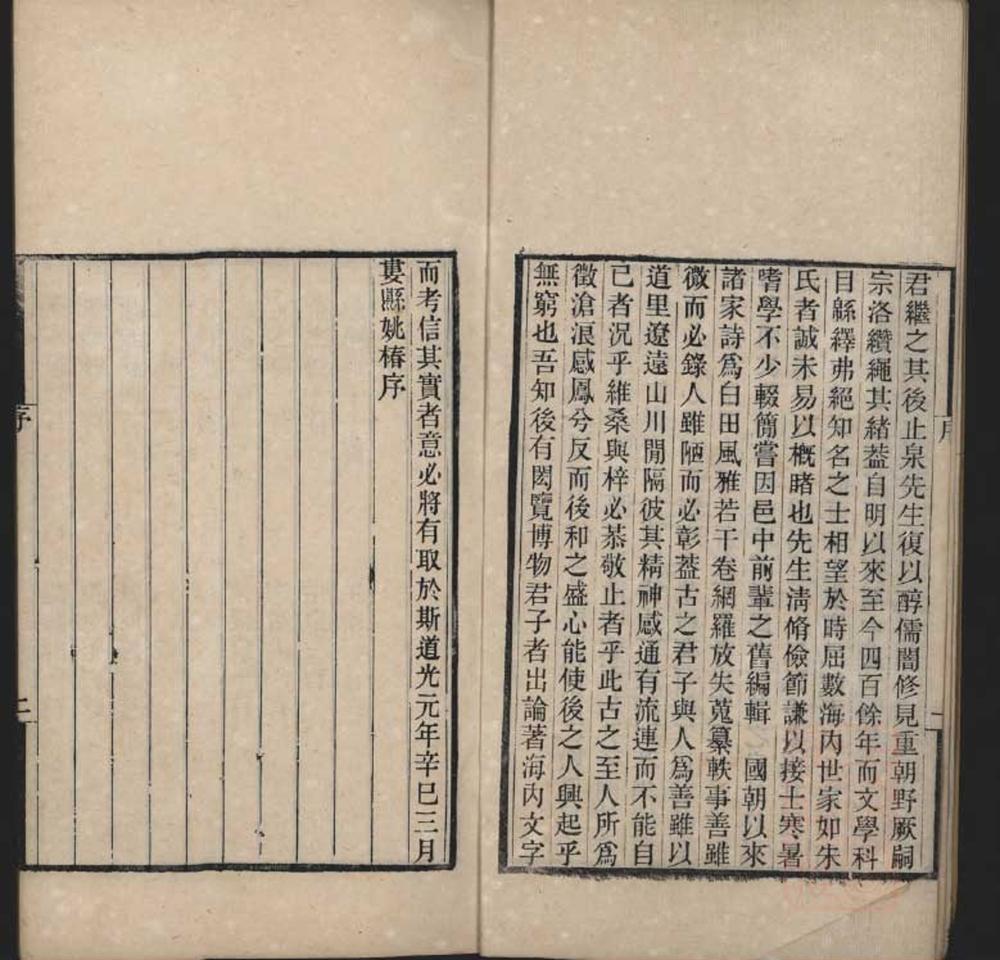 君繼之其後止泉先生復以醇儒闇修見重朝野厥嗣
宗洛纘繩其緒葢自明以來至今四百餘年而文學科
目緜繹弗絕知名之士相望於時屈數海內世家如朱
氏者誠未易以概睹也先生淸脩儉節謙以接士寒暑
嗜學不少輟簡嘗因邑中前輩之舊編輯 國朝以來
諸家詩爲白田風雅若干卷網羅放失蒐纂軼事善雖
微而必錄人雖陋而必彰葢古之君子與人爲善雖以
道里遼遠山川閒隔彼其精神感通有流連而不能自
已者況乎維桑與梓必恭敬止者乎此古之至人所爲
徵滄浪感鳳兮反而後和之盛心能使後之人興起乎
無窮也吾知後有閎覽博物君子者出論著海內文字
而考信其實者意必將有取於斯道光元年辛巳三月
婁縣姚椿序
序
二